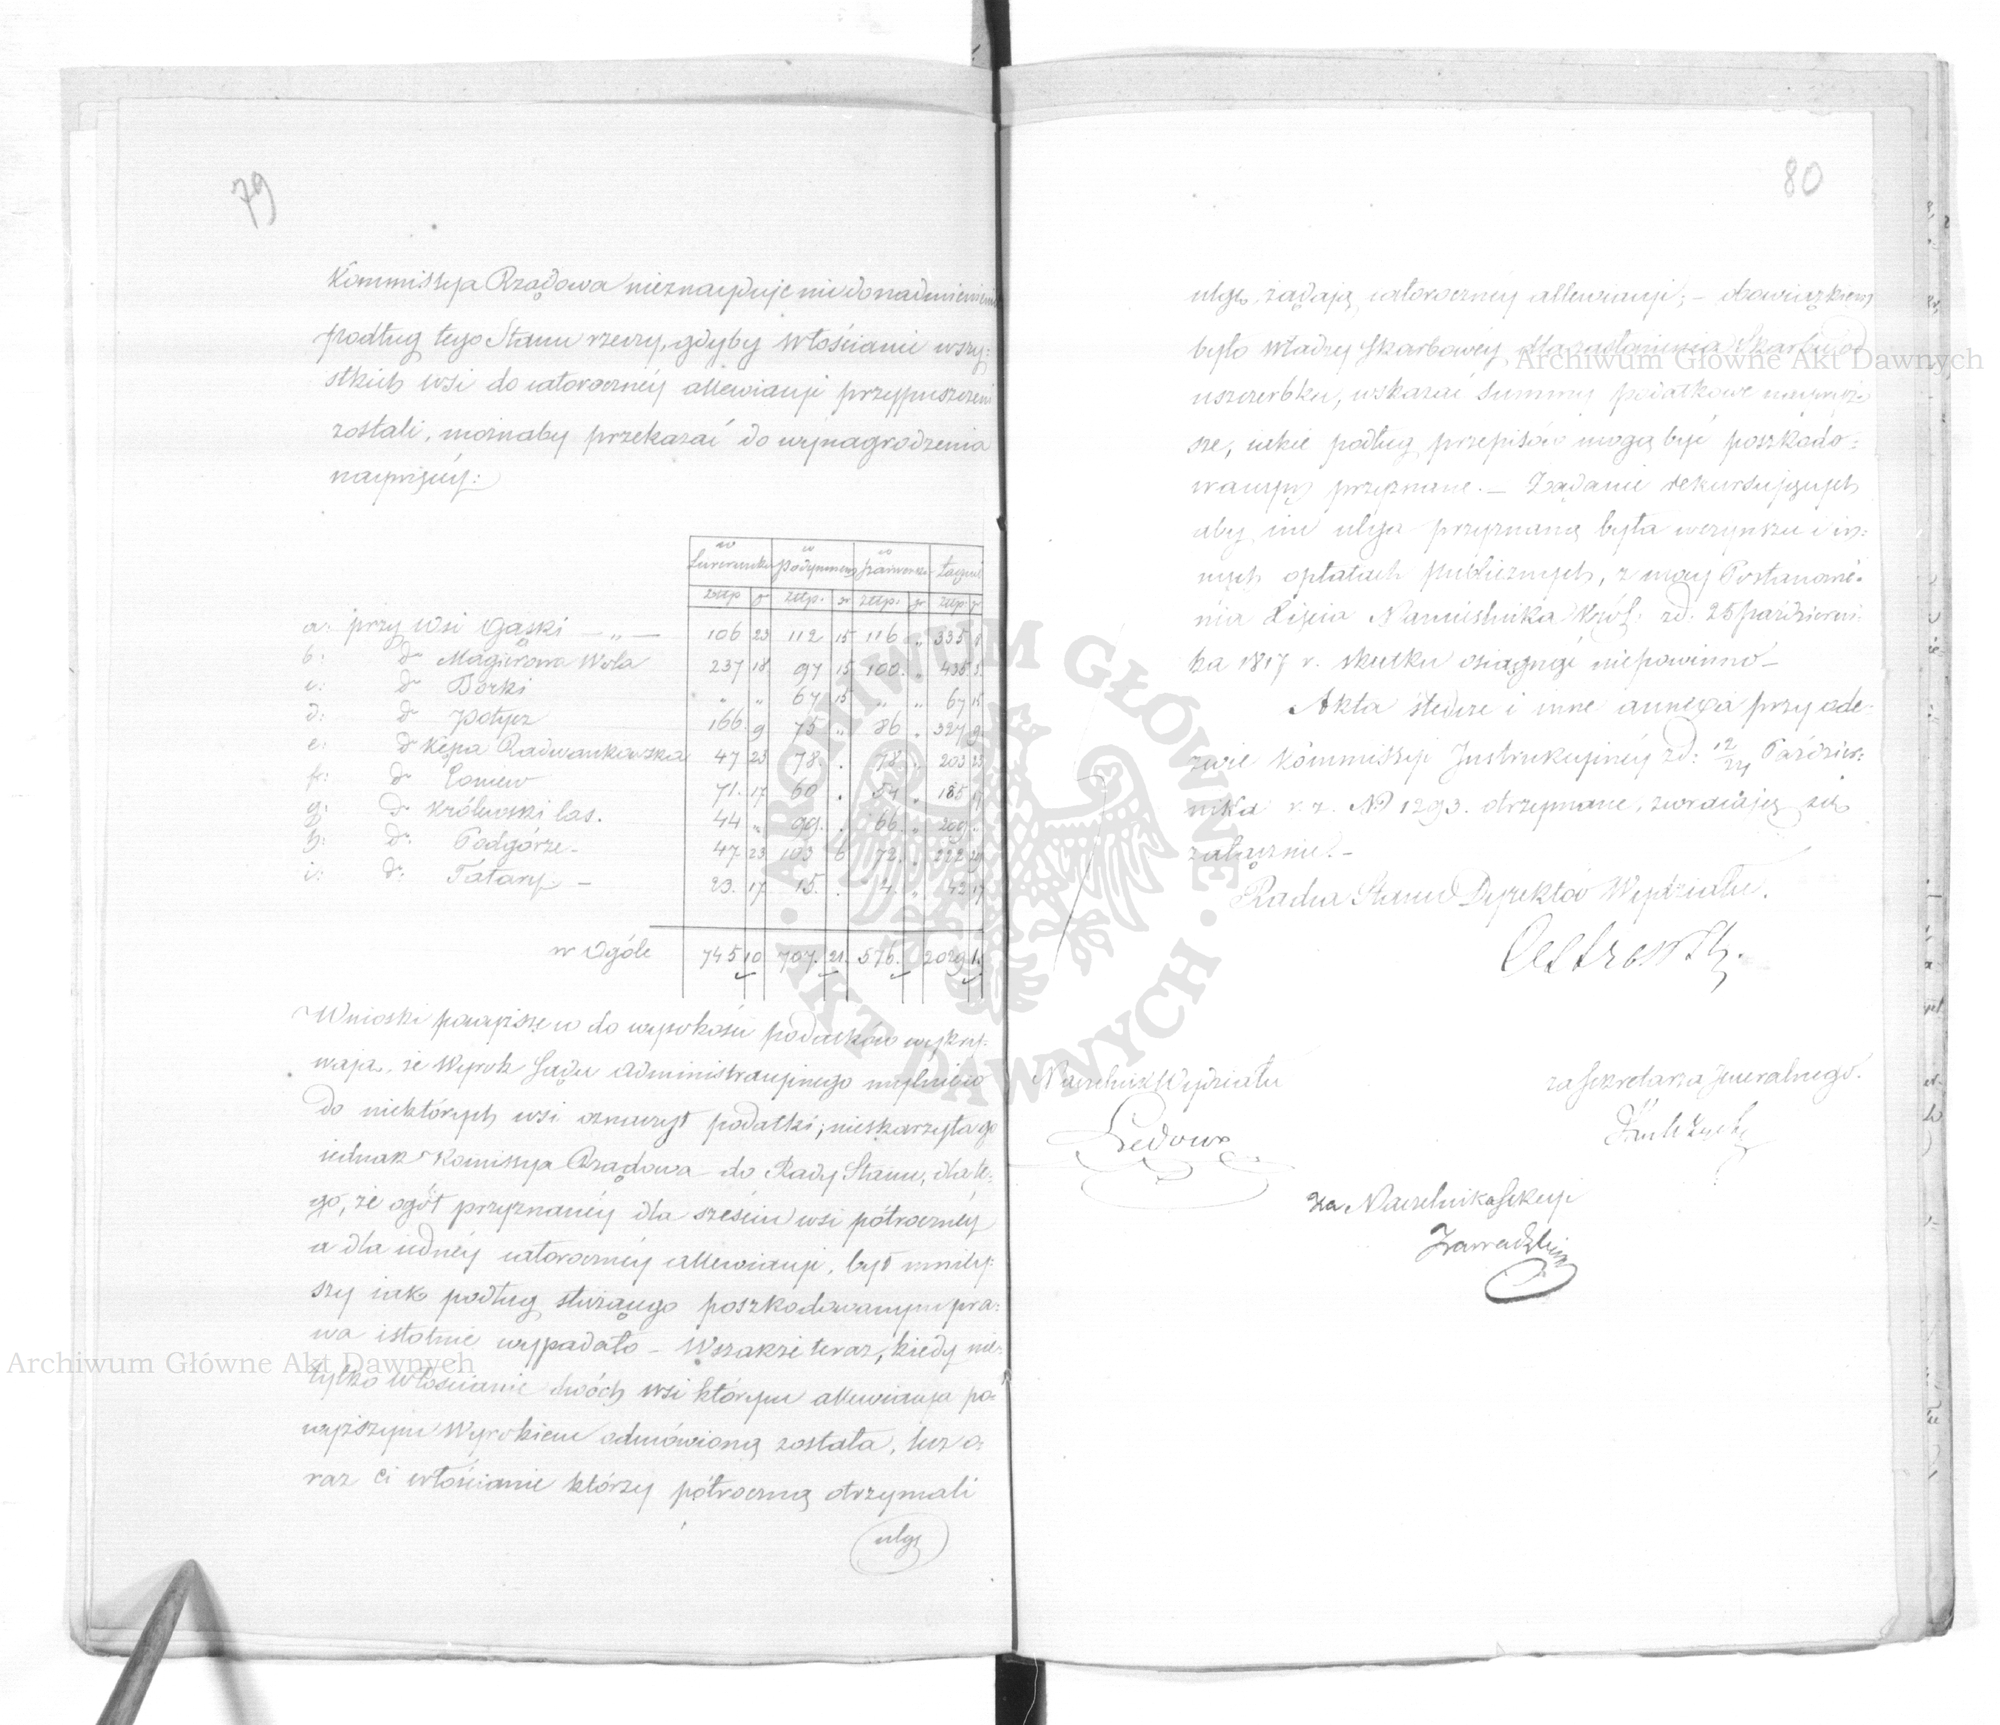 79
Kommissyja Rządowa nieznayduje nic do nadmienienia
podług tego Stanu rzeczy, gdyby Włościanie wszy:
stkich wsi do całoroczney allewiacyi przypuszczeni
zostali, możnaby przekazać do wynagrodzenia
naywięcéy:
w Liwerunku w podymnem w szarwarku Łącznie
złtp gr złtp. gr złtp. gr złtp. gr
a: przy wsi Gąski — „ — 106 23 112 15 116 „ 335 8
b: do Magierowa Wola 237 18 97 15 100 „ 435 3
c: do Borki „ „ 67 15 „ „ 67 15
d: do Potycz 166 9 75 „ 86 „ 327 9
e: do Kępa Radwankowska 47 23 78 „ 78 „ 203 23
f: do 71 17 60 „ 54 „ 185 17
g: do Królewski las. 44 „ 99 „ 66 „ 209 „
h: do Podgórze - 47 23 103 6 72 „ 222 29
i: do Tatary - 23 17 15 „ 4 „ 42 17
w Ogóle 745 10 707 21 576 „ 2029 1
Wnioski powyższe co do wysokości podatków wykry:
waja, że Wyrok Sądu Administracyinego mylnie co
do niektórych wsi oznaczył podatki; nieskarzyła go
iednak Komissyja Rządowa do Rady Stanu, dla te:
go, że ogół przyznanéy dla sześciu wsi półrocznéy
a dla iednéy całorocznéy allewiacyi, był mniéy:
szy iak podług służącego poszkodowanym pra:
wa istotnie wypadało – Wszakże teraz, kiedy nie:
tylko Włościanie dwóch wsi którym allewiacyja po:
wyższym Wyrokiem odmówioną została, lecz o:
raz ci włościanie którzy półroczną otrzymali
ulgę
80
ulgę, żądają całorocznéy allewiacyi; – obowiązkiem
było Władzy Skarbowéy dla zasłonienia Skarbu od
uszczerbku, wskazać Summy podatkowe naywyż:
sze, iakie podług przepisów mogą być poszkodo:
wanym przyznane. – Żądanie rekursuiących
aby im ulga przyznaną była w czynszu i in:
nych opłatach publicznych, z mocy Postanowie:
nia Xięcia Namiestnika Król: zd: 25 październi:
ka 1817 r. skutku osiągnąć niepowinno –
Akta śledcze i inne annexa przy ode:
zwie Kommissyi Instrukcyinéy zd: 12/24 Paździer:
nika r. z. No 1293. otrzymane, zwracaią się
załącznie. –
Radca Stanu Dyrektor Wydziału.
Naczelnik Wydziału
za Sekretarza Jeneralnego.
Ledoux
za Naczelnika Sekcyi
Archiwum Główne Akt Dawnych
Archiwum Główne Akt Dawnych
ARCHIWUM GŁÓWNE · AKT DAWNYCH ·